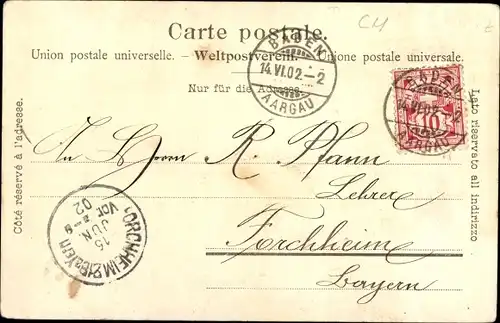 CM
Carte postale.
Union postale universelle. – Weltpostverein. – Unione postale universale.
Nur für die Adresse.
BADEN
14.VI.02.–2
AARGAU
BADEN
14.VI.02.–2
AARGAU
10
Côté réservé à l'adresse.
Lato riservato all indirizzo
An Herrn R. Pfann
Lehrer
Forchheim
Bayern
FORCHHEIM
15
JUN
02